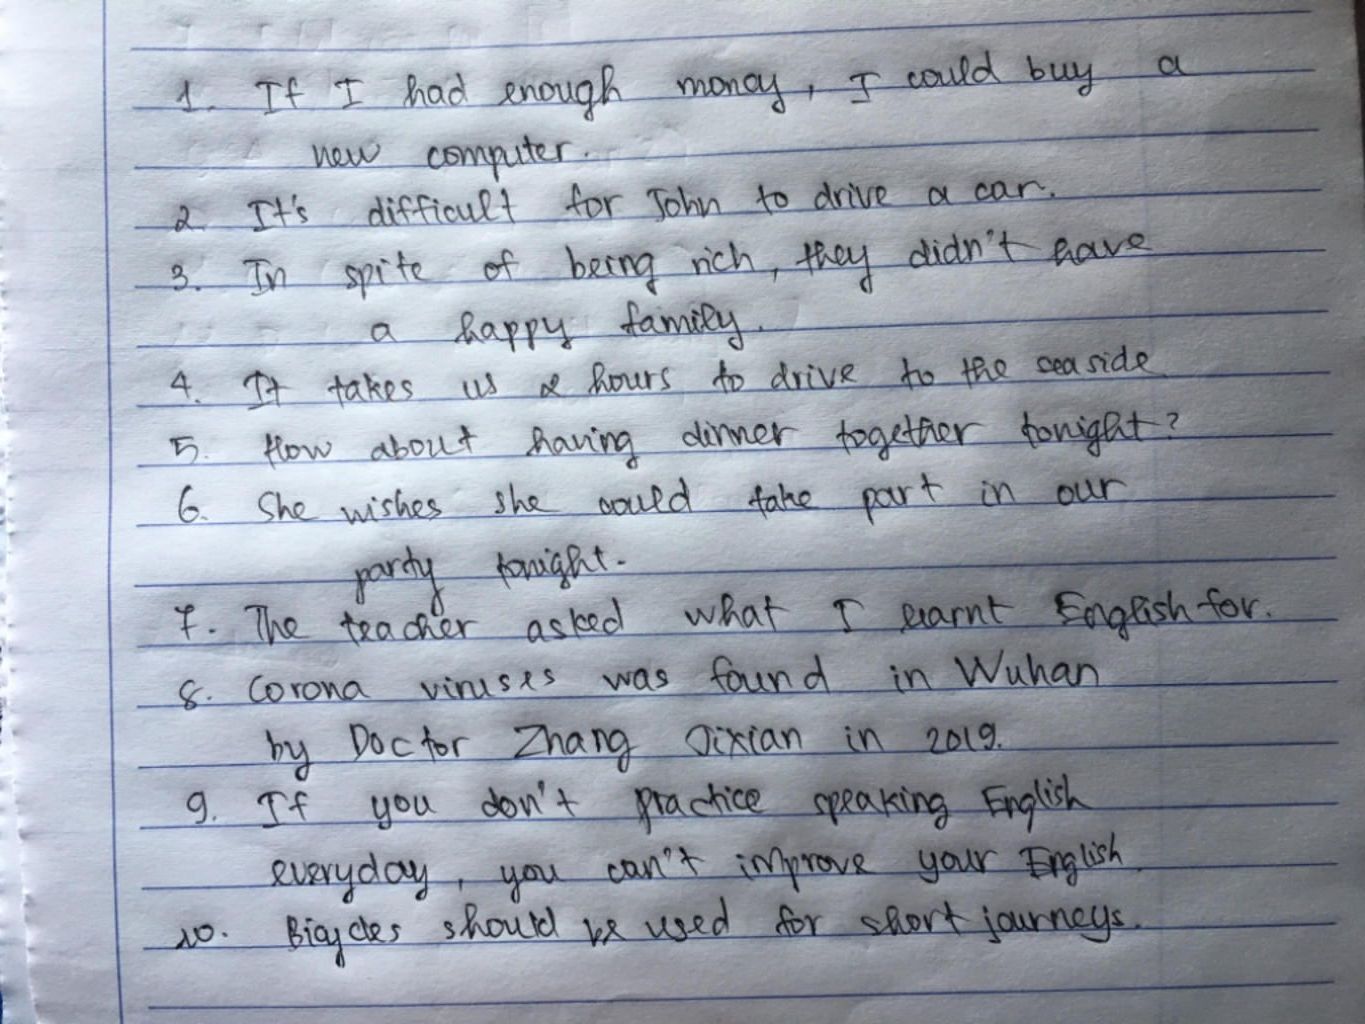 1. If I had enough money, I could buy a
new computer.
2. It's difficult for John to drive a car.
3. In spite of being rich, they didn't have
a happy family.
4. It takes us 2 hours to drive to the seaside
5. How about having dinner together tonight?
6. She wishes she could take part in our
party tonight.
7. The teacher asked what I learnt English for.
8. Corona viruses was found in Wuhan
by Doctor Zhang Jixian in 2019.
9. If you don't practice speaking English
everyday, you can't improve your English
10. Bicycles should be used for short journeys.